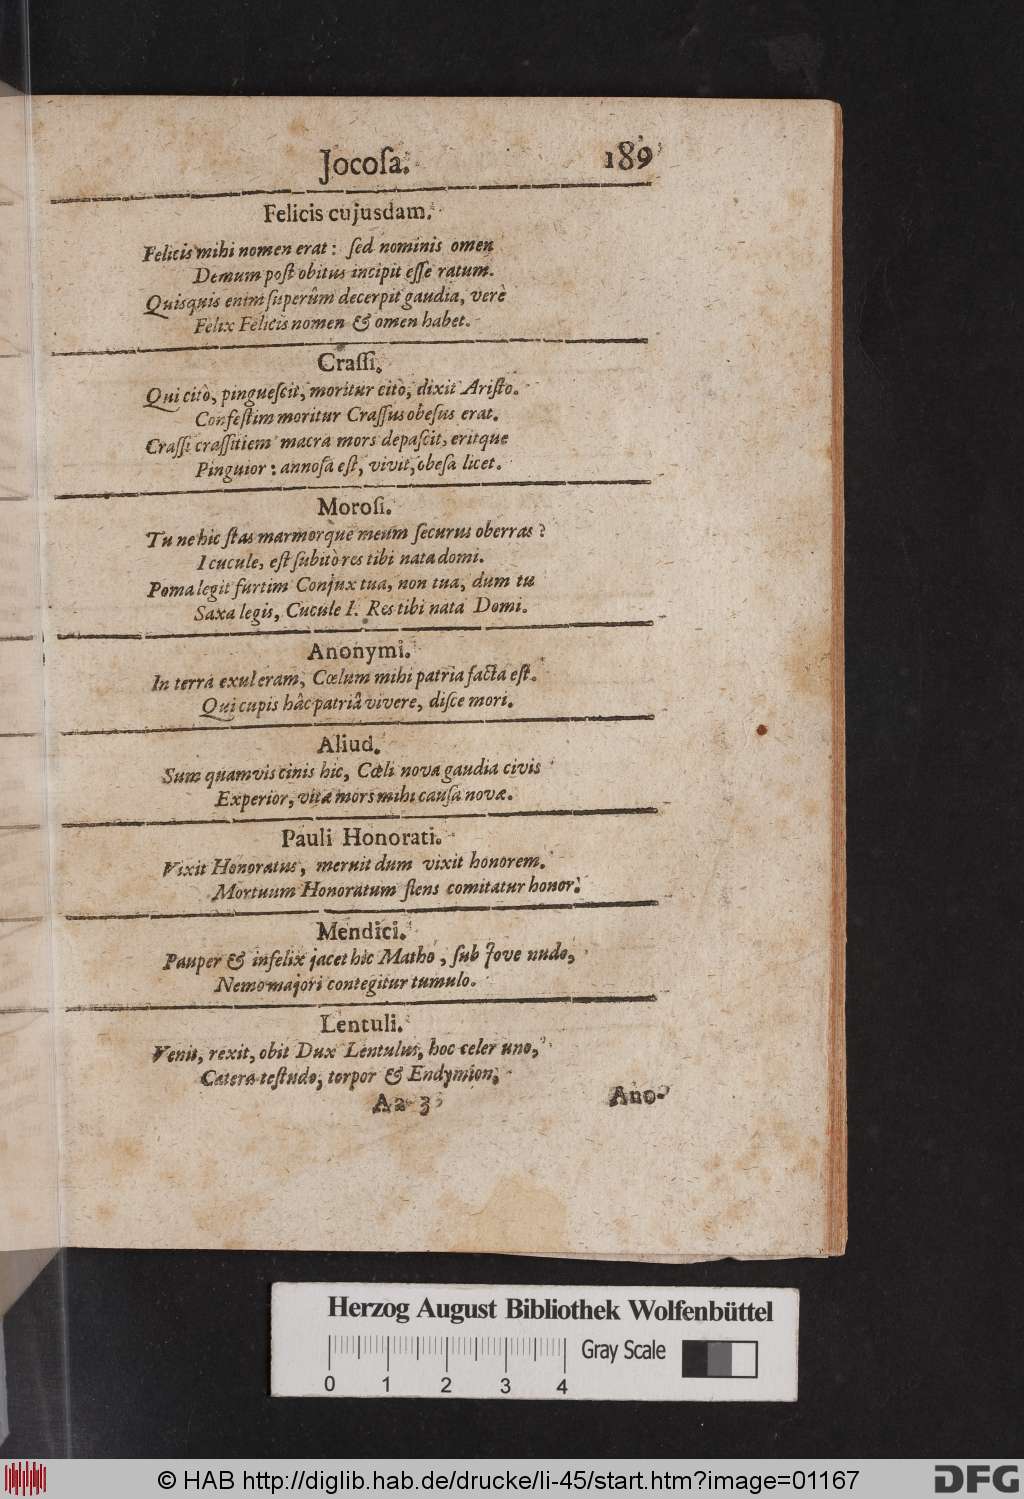 Jocoſa. 189
Felicis cujusdam.
Felicis mihi nomen erat: ſed nominis omen
Demum poſt obitus incipit eſſe ratum.
Quisquis enim ſuperûm decerpit gaudia, verè
Felix Felicis nomen & omen habet.
Craſſi.
Qui citò, pingueſcit, moritur citò, dixit Ariſto.
Confeſtim moritur Craſſus obeſus erat.
Craſſi craſſitiem macra mors depaſcit, eritque
Pinguior: annoſa eſt, vivit, obeſa licet.
Moroſi.
Tu ne hic ſtas marmorque meum ſecurus oberras?
I cucule, eſt ſubitò res tibi nata domi.
Poma legit furtim Conjux tua, non tua, dum tu
Saxa legis, Cucule I. Res tibi nata Domi.
Anonymi.
In terra exul eram, Cœlum mihi patria facta eſt.
Qui cupis hâc patriâ vivere, diſce mori.
Aliud.
Sum quamvis cinis hic, Cœli nova gaudia civis
Experior, vitæ mors mihi cauſa novæ.
Pauli Honorati.
Vixit Honoratus, meruit dum vixit honorem.
Mortuum Honoratum flens comitatur honor.
Mendici.
Pauper & infelix jacet hic Matho, ſub Jove nudo,
Nemo majori contegitur tumulo.
Lentuli.
Venit, rexit, obit Dux Lentulus, hoc celer uno,
Cætera teſtudo, torpor & Endymion,
Aa 3 Ano-
Herzog August Bibliothek Wolfenbüttel
Gray Scale
0 1 2 3 4
© HAB http://diglib.hab.de/drucke/li-45/start.htm?image=01167
DFG